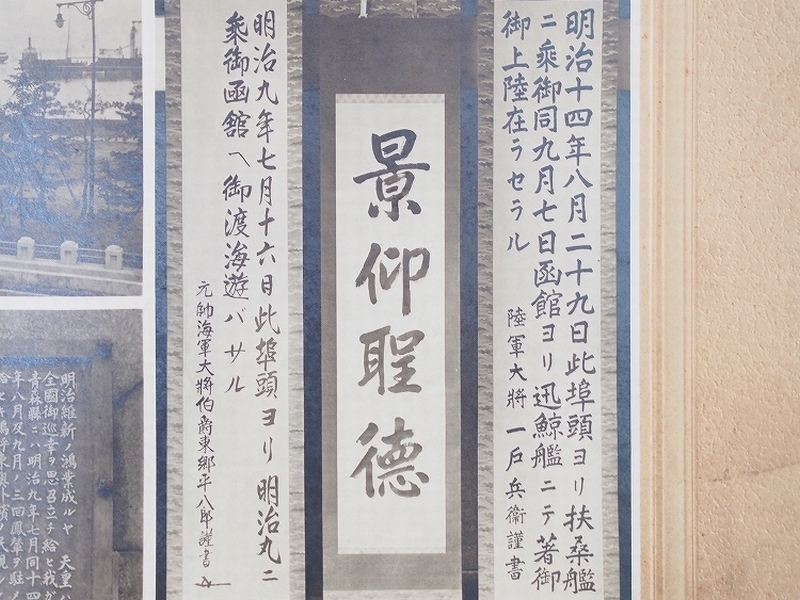 明治十四年八月二十九日此埠頭ヨリ扶桑艦
ニ乘御同九月七日函館ヨリ迅鯨艦ニテ著御
御上陸在ラセラル
陸軍大將 一戸兵衞謹書
景仰聖德
明治九年七月十六日此埠頭ヨリ明治丸ニ
乘御函館ヘ御渡海遊バサル
元帥海軍大將伯爵東郷平八郎謹書
明治維新ノ鴻業成ルヤ 天皇ハ
全國御巡幸ヲ思召立チ給ヒ我ガ
青森縣ニハ明治九年七月同十四
年八月及九月ノ三回鳳輦ヲ駐メ